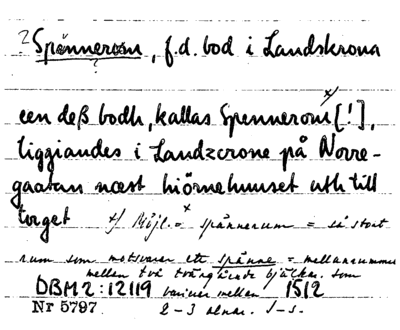 ? Spännerom, f.d. bod i Landskrona
?
een deß bodh, kallas Spennerom x/ [!],
liggiandes i Landzcrone på Norre-
gaatan næst hiörnehuuset uth till
torget x/ Möjl. = spännerum = så stort
rum som motsvarar ett spänne = mellanrummet
mellan två tvärgående bjälkar. som
DBM 2:12119 varierar mellan 1512
Nr 5797. 2-3 alnar. J-s.